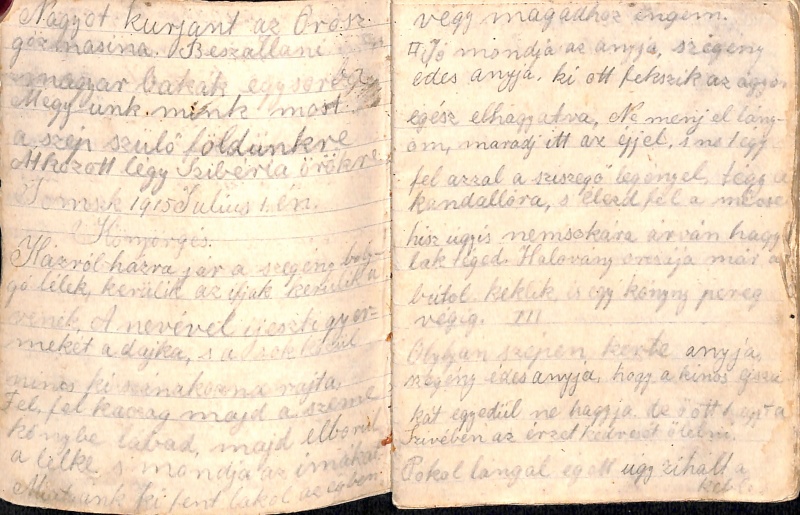 Nagyot kurjant az Orosz
gőzmasina. Beszállani
magyar bakák egy sorba
Megy unk mink most
a szép szülő földünkre
Átkozott légy Sziberia örökre
Tomszk 1915 Julius 1. én.
Házról házra jár a szegény boly-
gó lélek, kerülik az ifjak kerülik a
vének, A nevével ijeszti gyer-
meket a dajka, s a sok közül
nincs ki szánakozna rajta,
Fel, fel kacag majd a szeme
könybe lábad, majd elborul
a lelke s mondja az imákat
Miatyánk ki fent lakol az égben
vegy magadhoz engem.
II Jó mondja az anyja, szegény
édes anyja, ki ott fekszik az ágyon
egész elhagyatva, Ne menj el lány-
om, maradj itt az éjjel, s ne légy
fel azzal a sziszegő legényel, tégy a
kandallóra, s éleszd fel a mécset
hisz úgyis nemsokára árván hagy
lak téged. Halovány orcája már a
kéklik, is egy könny pereg
végig. III
Olyhan szépen kérte anyja,
szegény édes anyja, hogy a kinos éjsza
kát egyedül ne hagyja. de ő ott hagyta
Szivében az érzet
Pokol lángal égett ugy zihált a
keble